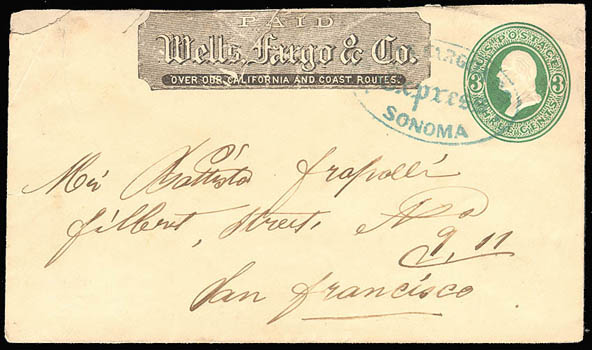 PAID
Wells, Fargo & Co.
OVER OUR CALIFORNIA AND COAST ROUTES.
FARGO
Express
SONOMA
U.S. POSTAGE
3 3
THREE CENTS
Battista Frapolli
Gilbert, Street, No
9, 11
San Francisco